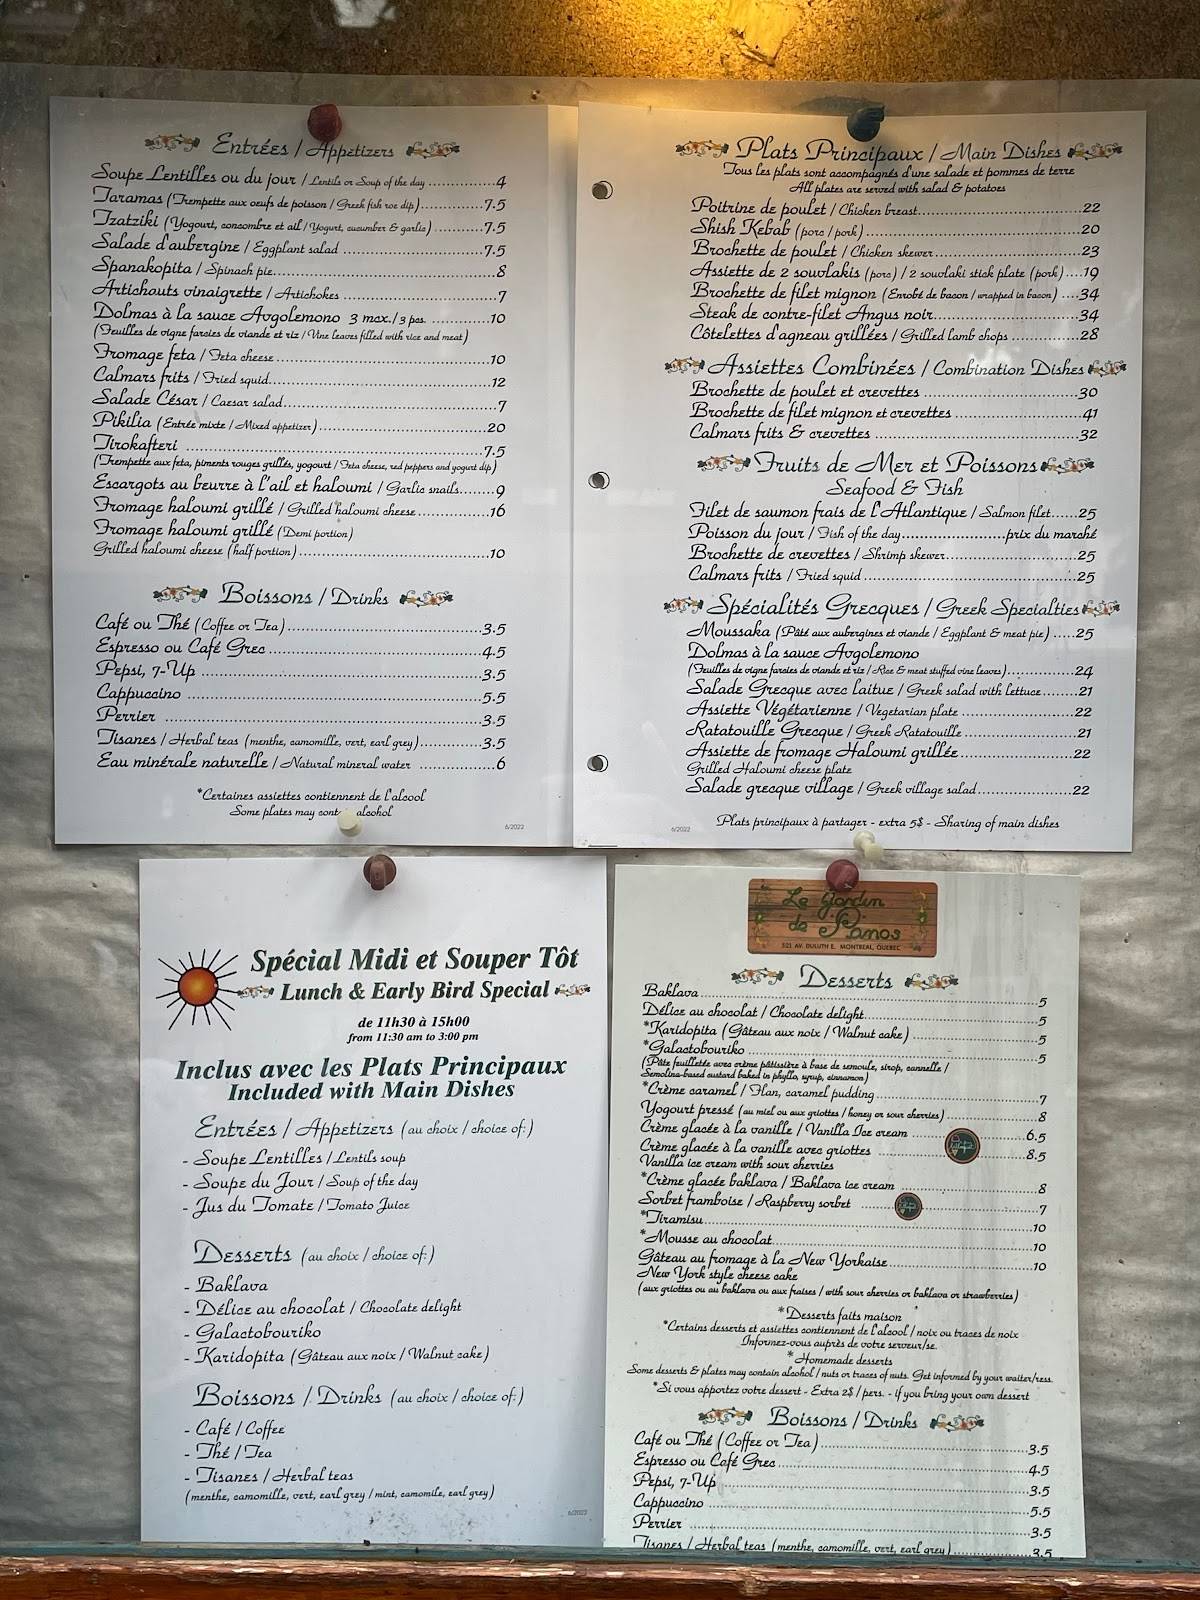 Entrées / Appetizers
Soupe Lentilles ou du jour / Lentils or Soup of the day ................4
Taramas (Trempette aux oeufs de poisson / Greek fish roe dip)................7.5
Tzatziki (Yogourt, concombre et ail / Yogurt, cucumber & garlic) ................7.5
Salade d'aubergine / Eggplant salad ................7.5
Spanakopita / Spinach pie................8
Artichauts vinaigrette / Artichokes ................7
Dolmas à la sauce Avgolemono 3 mcx./3 pcs. ................10
(Feuilles de vigne farcies de viande et riz / Vine leaves filled with rice and meat)
Fromage feta / Feta cheese ................10
Calmars frits / Fried squid................12
Salade César / Caesar salad................7
Pikilia (Entrée mixte / Mixed appetizer)................20
Tirokafteri ................7.5
(Trempette aux feta, piments rouges grillés, yogourt / Feta cheese, red peppers and yogurt dip)
Escargots au beurre à l'ail et haloumi / Garlic snails........9
Fromage haloumi grillé / Grilled haloumi cheese................16
Fromage haloumi grillé (Demi portion)
Grilled haloumi cheese (half portion)................10
Boissons / Drinks
Café ou Thé (Coffee or Tea)................3.5
Espresso ou Café Grec ................4.5
Pepsi, 7-Up ................3.5
Cappuccino ................5.5
Perrier ................3.5
Tisanes / Herbal teas (menthe, camomille, vert, earl grey)................3.5
Eau minérale naturelle / Natural mineral water ................6
*Certaines assiettes contiennent de l'alcool
Some plates may conta alcohol
6/2022
Plats Principaux / Main Dishes
Tous les plats sont accompagnés d'une salade et pommes de terre
All plates are served with salad & potatoes
Poitrine de poulet / Chicken breast................22
Shish Kebab (porc / pork)................20
Brochette de poulet / Chicken skewer................23
Assiette de 2 souvlakis (porc) / 2 souvlaki stick plate (pork)....19
Brochette de filet mignon (Enrobé de bacon / wrapped in bacon) ....34
Steak de contre-filet Angus noir................34
Côtelettes d'agneau grillées / Grilled lamb chops ................28
Assiettes Combinées / Combination Dishes
Brochette de poulet et crevettes ................30
Brochette de filet mignon et crevettes ................41
Calmars frits & crevettes ................32
Fruits de Mer et Poissons
Seafood & Fish
Filet de saumon frais de l'Atlantique / Salmon filet......25
Poisson du jour / Fish of the day................prix du marché
Brochette de crevettes / Shrimp skewer................25
Calmars frits / Fried squid ................25
Spécialités Grecques / Greek Specialties
Moussaka (Pâté aux aubergines et viande / Eggplant & meat pie) .....25
Dolmas à la sauce Avgolemono
(Feuilles de vigne farcies de viande et riz / Rice & meat stuffed vine leaves)................24
Salade Grecque avec laitue / Greek salad with lettuce........21
Assiette Végétarienne / Vegetarian plate ................22
Ratatouille Grecque / Greek Ratatouille ................21
Assiette de fromage Haloumi grillée................22
Grilled Haloumi cheese plate
Salade grecque village / Greek village salad................22
Plats principaux à partager - extra 5$ - Sharing of main dishes
6/2022
Spécial Midi et Souper Tôt
Lunch & Early Bird Special
de 11h30 à 15h00
from 11:30 am to 3:00 pm
Inclus avec les Plats Principaux
Included with Main Dishes
Entrées / Appetizers (au choix / choice of:)
- Soupe Lentilles / Lentils soup
- Soupe du Jour / Soup of the day
- Jus du Tomate / Tomato Juice
Desserts (au choix / choice of:)
- Baklava
- Délice au chocolat / Chocolate delight
- Galactobouriko
- Karidopita (Gâteau aux noix / Walnut cake)
Boissons / Drinks (au choix / choice of:)
- Café / Coffee
- Thé / Tea
- Tisanes / Herbal teas
(menthe, camomille, vert, earl grey / mint, camomile, earl grey)
6/2022
Le Jardin
de Panos
521 AV. DULUTH E. MONTREAL, QUEBEC
Desserts
Baklava................5
Délice au chocolat / Chocolate delight................5
*Karidopita (Gâteau aux noix / Walnut cake)................5
*Galactobouriko ................5
(Pâte feuilletée avec crème pâtissière à base de semoule, sirop, cannelle /
Semolina-based custard baked in phyllo, syrup, cinnamon)
*Crème caramel / Flan, caramel pudding................7
Yogourt pressé (au miel ou aux griottes / honey or sour cherries)................8
Crème glacée à la vanille / Vanilla Ice cream ................6.5
Crème glacée à la vanille avec griottes ................8.5
Vanilla ice cream with sour cherries
*Crème glacée baklava / Baklava ice cream ................8
Sorbet framboise / Raspberry sorbet ................7
*Tiramisu................10
*Mousse au chocolat................10
Gâteau au fromage à la New Yorkaise................10
New York style cheese cake
(aux griottes ou au baklava ou aux fraises / with sour cherries or baklava or strawberries)
*Desserts faits maison
*Certains desserts et assiettes contiennent de l'alcool / noix ou traces de noix
Informez-vous auprès de votre serveur/se.
*Homemade desserts
Some desserts & plates may contain alcohol / nuts or traces of nuts. Get informed by your waiter/ress.
*Si vous apportez votre dessert - Extra 2$ / pers. - if you bring your own dessert
Boissons / Drinks
Café ou Thé (Coffee or Tea)................3.5
Espresso ou Café Grec ................4.5
Pepsi, 7-Up ................3.5
Cappuccino ................5.5
Perrier ................3.5
Tisanes / Herbal teas (menthe, camomille, vert, earl grey)................3.5